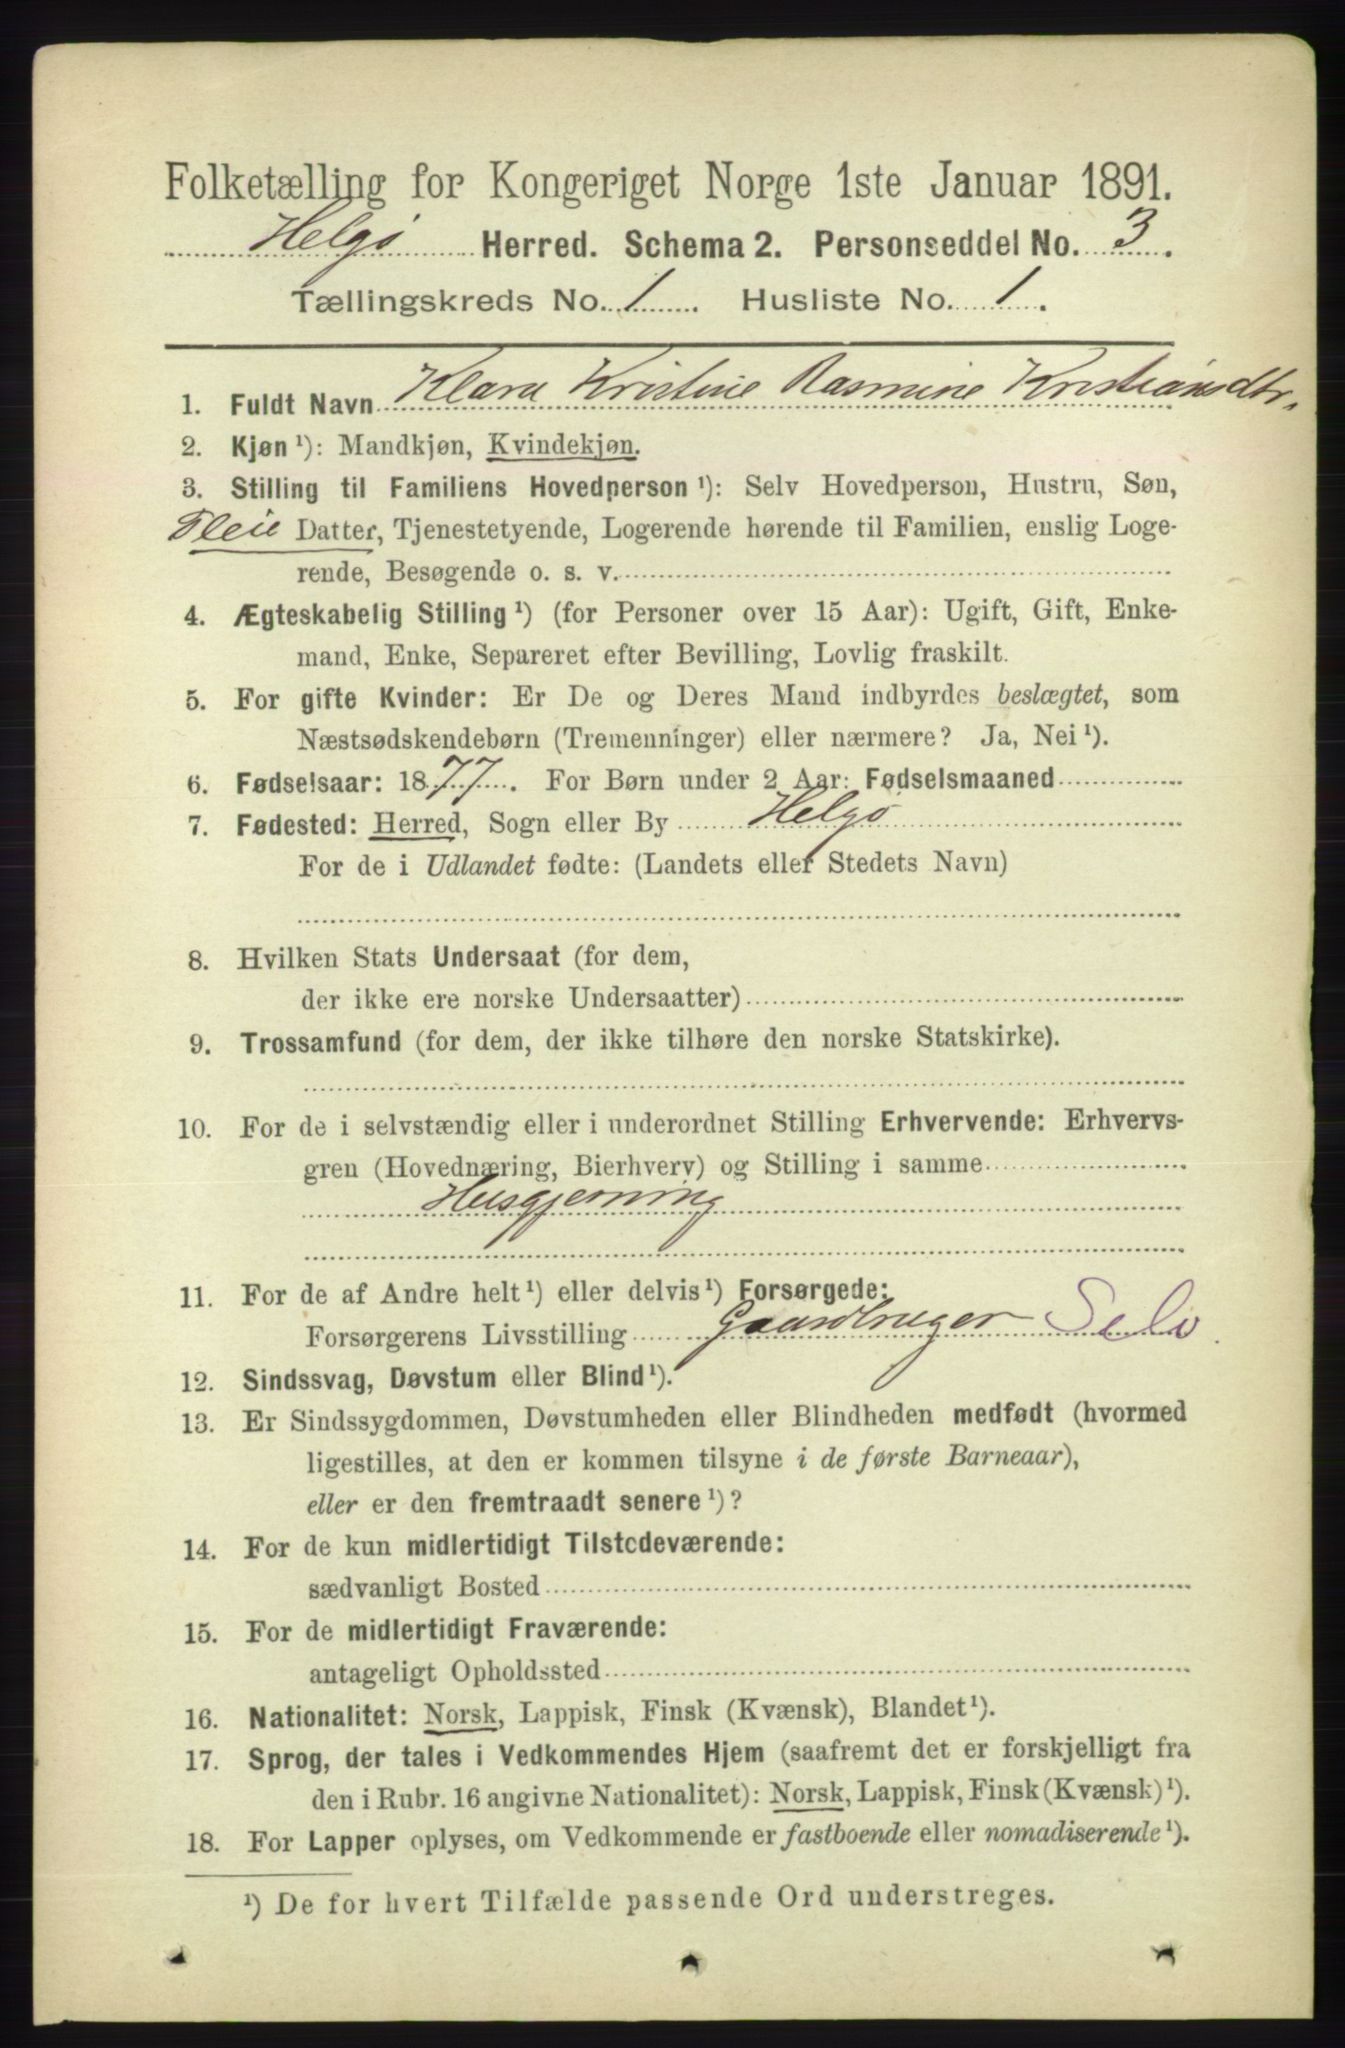 Folketælling for Kongeriget Norge 1ste Januar 1891.
Helgø Herred. Schema 2. Personseddel No. 3.
Tællingskreds No. 1. Husliste No. 1.
1. Fuldt Navn Klara Kristine Rasmine Kristiansdtr.
2. Kjøn ¹): Mandkjøn, Kvindekjøn.
3. Stilling til Familiens Hovedperson ¹): Selv Hovedperson, Hustru, Søn,
Pleie Datter, Tjenestetyende, Logerende hørende til Familien, enslig Loge-
rende, Besøgende o. s. v.
4. Ægteskabelig Stilling ¹) (for Personer over 15 Aar): Ugift, Gift, Enke-
mand, Enke, Separeret efter Bevilling, Lovlig fraskilt.
5. For gifte Kvinder: Er De og Deres Mand indbyrdes beslægtet, som
Næstsødskendebørn (Tremenninger) eller nærmere? Ja, Nei ¹).
6. Fødselsaar: 1877. For Børn under 2 Aar: Fødselsmaaned
7. Fødested: Herred, Sogn eller By Helgø
For de i Udlandet fødte: (Landets eller Stedets Navn)
8. Hvilken Stats Undersaat (for dem,
der ikke ere norske Undersaatter)
9. Trossamfund (for dem, der ikke tilhøre den norske Statskirke).
10. For de i selvstændig eller i underordnet Stilling Erhvervende: Erhvervs-
gren (Hovednæring, Bierhverv) og Stilling i samme
Husgjerning
11. For de af Andre helt ¹) eller delvis ¹) Forsørgede:
Forsørgerens Livsstilling Gaardbruger Selv.
12. Sindssvag, Døvstum eller Blind ¹).
13. Er Sindssygdommen, Døvstumheden eller Blindheden medfødt (hvormed
ligestilles, at den er kommen tilsyne i de første Barneaar),
eller er den fremtraadt senere ¹)?
14. For de kun midlertidigt Tilstedeværende:
sædvanligt Bosted
15. For de midlertidigt Fraværende:
antageligt Opholdssted
16. Nationalitet: Norsk, Lappisk, Finsk (Kvænsk), Blandet ¹).
17. Sprog, der tales i Vedkommendes Hjem (saafremt det er forskjelligt fra
den i Rubr. 16 angivne Nationalitet): Norsk, Lappisk, Finsk (Kvænsk) ¹).
18. For Lapper oplyses, om Vedkommende er fastboende eller nomadiserende ¹).
¹) De for hvert Tilfælde passende Ord understreges.